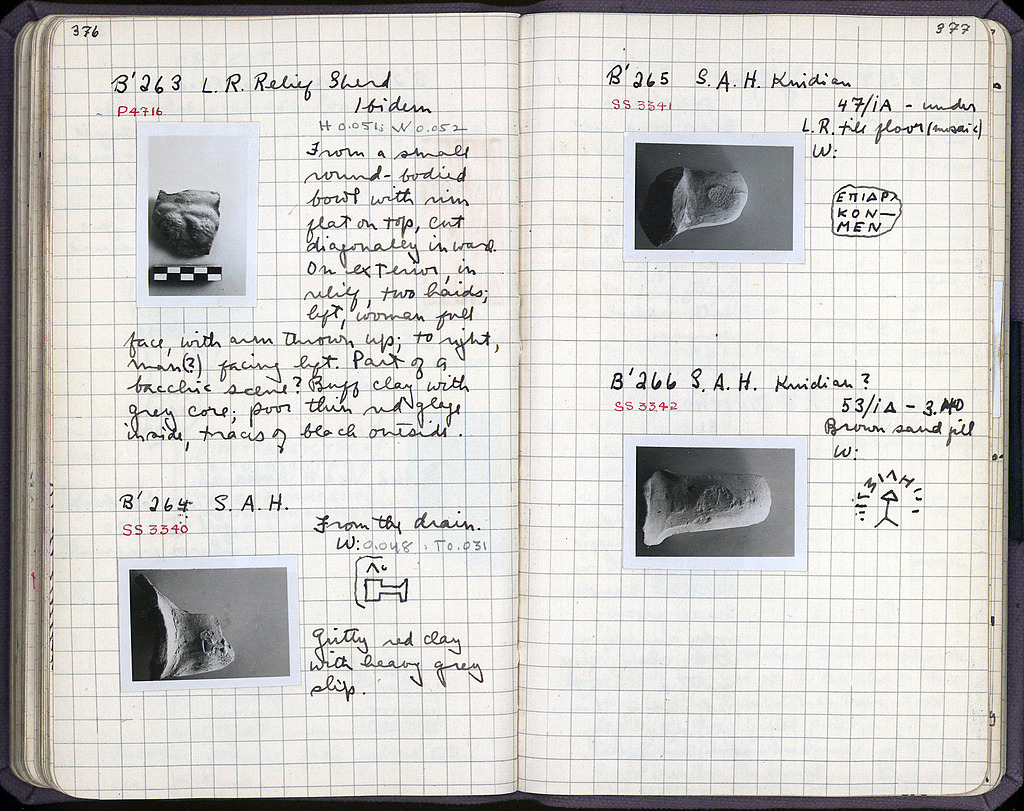 376
B'263 L.R. Relief Sherd
P4716
Ibidem
H 0.051; W 0.052
From a small
round-bodied
bowl with rim
flat on top, cut
diagonally inward.
On exterior, in
relief, two
left, woman full
face, with arm thrown up; to right,
man(?) facing left. Part of a
bacchic scene? Buff clay with
grey core; poor thin red glaze
inside, traces of black outside.
B'264 S.A.H.
SS 3340
From the drain.
W: 0.048. T 0.031
Gritty red clay
with heavy grey
slip.
377
B'265 S.A.H. Knidian
SS 3341
47/ΙΑ - under
L.R. tile floor (mosaic)
W:
ΕΠΙΔΡ
ΚΟΝ—
ΜΕΝ
B'266 S.A.H. Knidian?
SS 3342
53/ΙΔ - 3.40
Brown sand fill
W: